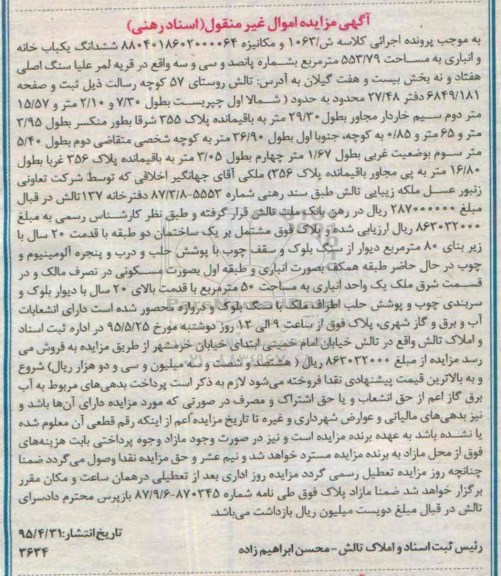 آگهی مزایده اموال غیر منقول (اسناد رهنی)
به موجب پرونده اجرائی کلاسه ش/۱۰۶۳ و مکانیزه ۸۸۰۴۰۱۸۶۰۲۰۰۰۰۶۴ ششدانگ یکباب خانه
و انباری به مساحت ۵۵۳/۷۹ مترمربع بشماره پانصد و سی و سه واقع در قریه لمر علیا سنگ اصلی
هفتاد و نه بخش بیست و هفت گیلان به آدرس: تالش روستای ۵۷ کوچه رسالت ذیل ثبت و صفحه
۶۸۴۹/۱۸۱ دفتر ۲۷/۴۸ محدود به حدود ( شمالا اول چپریست بطول ۷/۳۰ و ۲/۱۰ متر و ۱۵/۵۷
متر دوم سیم خاردار مجاور بطول ۲۹/۳۰ متر به باقیمانده پلاک ۳۵۵ شرقا بطور منکسر بطول ۳/۹۵
متر و ۶۵ متر و ۰/۸۵ به کوچه، جنوبا اول بطول ۳۶/۹۰ متر به کوچه شخصی متقاضی دوم بطول ۵/۴۰
متر سوم بوضعیت غربی بطول ۱/۶۷ متر چهارم بطول ۳/۰۵ متر به باقیمانده پلاک ۳۵۶ غربا بطول
۱۶/۸۰ متر به پی مجاور باقیمانده پلاک ۳۵۶) ملکی آقای جهانگیر اخلاقی که توسط شرکت تعاونی
زنبور عسل ملکه زیبایی تالش طبق سند رهنی شماره ۵۵۵۳-۸۷/۳/۸ دفترخانه ۱۳۷ تالش در قبال
مبلغ ۲۸۷۰۰۰۰۰۰ ریال در رهن بانک ملت تالش قرار گرفته و طبق نظر کارشناس رسمی به مبلغ
۸۶۳۰۳۲۰۰۰ ریال ارزیابی شده و پلاک فوق مشتمل بر یک ساختمان دو طبقه با قدمت ۲۰ سال با
زیر بنای ۸۰ مترمربع دیوار از سنگ بلوک و سقف چوب با پوشش حلب و درب و پنجره آلومینیوم و
چوب در حال حاضر طبقه همکف بصورت انباری و طبقه اول بصورت مسکونی در تصرف مالک و در
قسمت شرق ملک یک واحد انباری به مساحت ۵۰ مترمربع با قدمت بالای ۲۰ سال با دیوار بلوک و
سربندی چوب و پوشش حلب اطراف ملک با سنگ بلوک و دروازه محصور شده است دارای انشعابات
آب و برق و گاز شهری، پلاک فوق از ساعت ۹ الی ۱۲ روز دوشنبه مورخ ۹۵/۵/۲۵ در اداره ثبت اسناد
و املاک تالش واقع در تالش خیابان امام خمینی ابتدای خیابان خرمشهر از طریق مزایده به فروش می
رسد مزایده از مبلغ ۸۶۳۰۳۲۰۰۰ ریال ( هشتصد و شصت و سه میلیون و سی و دو هزار ریال) شروع
و به بالاترین قیمت پیشنهادی نقدا فروخته می‌شود لازم به ذکر است پرداخت بدهی‌های مربوط به آب
برق گاز اعم از حق انشعاب و یا حق اشتراک و مصرف در صورتی که مورد مزایده دارای آن‌ها باشد و
نیز بدهی‌های مالیاتی و عوارض شهرداری و غیره تا تاریخ مزایده اعم از اینکه رقم قطعی آن معلوم شده
یا نشده باشد به عهده برنده مزایده است و نیز در صورت وجود مازاد وجوه پرداختی بابت هزینه‌های
فوق از محل مازاد به برنده مزایده مسترد خواهد شد و نیم عشر و حق مزایده نقدا وصول می‌گردد ضمنا
چنانچه روز مزایده تعطیل رسمی گردد مزایده روز اداری بعد از تعطیلی درهمان ساعت و مکان مقرر
برگزار خواهد شد ضمنا مازاد پلاک فوق طی نامه شماره ۸۷۰۲۴۵-۸۷/۹/۶ بازپرس محترم دادسرای
تالش در قبال مبلغ دویست میلیون ریال بازداشت می‌باشد.
تاریخ انتشار: ۹۵/۴/۳۱
رئیس ثبت اسناد و املاک تالش - محسن ابراهیم زاده
۳۶۳۴